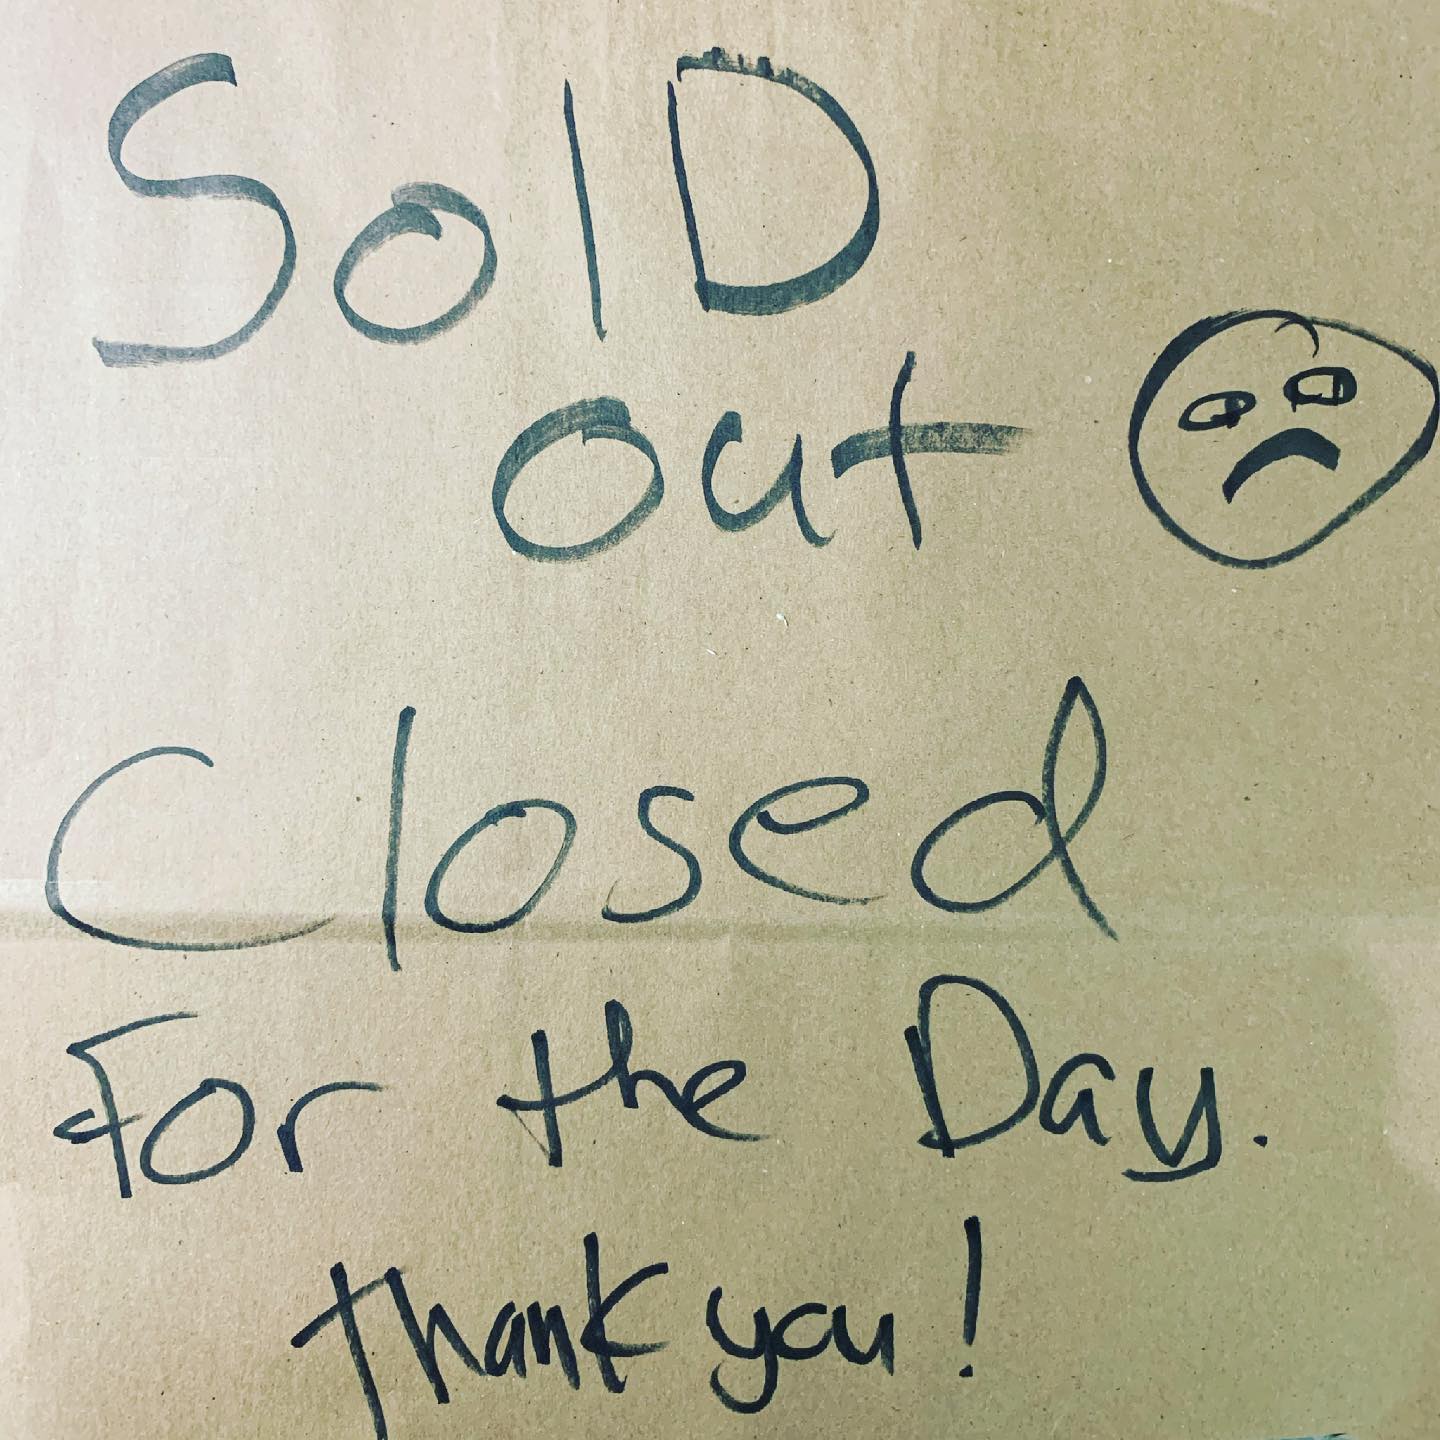 SolD
out
Closed
For the Day.
Thank you!